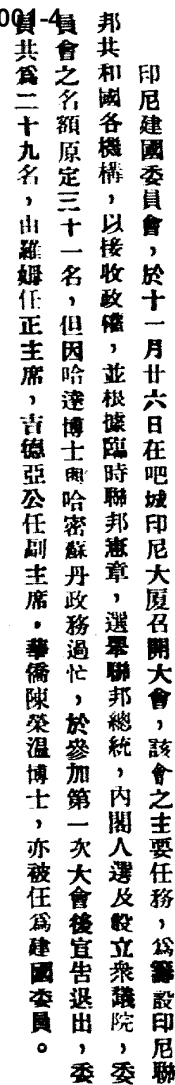 001-4
印尼建國委員會，於十一月廿六日在吧城印尼大厦召開大會，該會之主要任務，爲籌設印尼聯
邦共和國各機構，以接收政權，並根據臨時聯邦憲章，選舉聯邦總統，內閣人選及設立衆議院，委
員會之名額原定三十一名，但因哈達博士與哈密蘇丹政務過忙，於參加第一次大會後宣告退出，委
員共爲二十九名，由羅姆任正主席，吉德亞公任副主席。華僑陳榮温博士，亦被任爲建國委員。